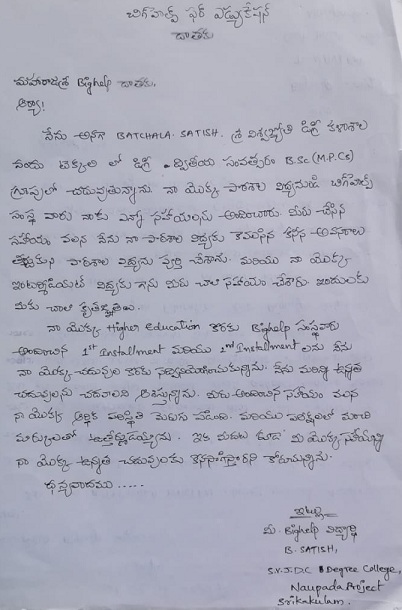 బిగ్‌హెల్ప్ ఫర్ ఎడ్యుకేషన్
దాతకు
మహారాజశ్రీ Bighelp దాతకు,
ఆర్యా!
నేను అనగా BATCHALA. SATISH. శ్రీ విశ్వజ్యోతి డిగ్రీ కళాశాల
నందు టెక్కలి లో డిగ్రీ ద్వితీయ సంవత్సరం B.Sc (M.P.Cs)
గ్రూపులో చదువుతున్నాను. నా యొక్క పాఠశాల విద్యనుండి బిగ్‌హెల్ప్
సంస్థ వారు నాకు ఎన్నో సహాయలను అందించారు. మీరు చేసిన
సహాయం వలన నేను నా పాఠశాల విద్యను కావలసిన కనీస అవసరాలు
పాఠశాల విద్యను పూర్తి చేశాను. మరియు నా యొక్క
ఇంటర్మీడియట్ విద్యకు గాను మీరు చాలా సహాయం చేశారు. ఇందులకు
మీకు చాలా కృతజ్ఞతలు.
నా యొక్క Higher Education కొరకు Bighelp సంస్థవారు
అందించిన 1st Installment మరియు 2nd Installment లను నేను
నా యొక్క చదువుల కొరకు సద్వినియోగించుకున్నాను. నేను మరిన్ని ఉన్నత
చదువులను చదవాలని ఆశిస్తున్నాను. మీరు అందించిన సహాయం వలన
నా యొక్క ఆర్థిక పరిస్థితి మెరుగు పడింది. మరియు పరీక్షలలో మంచి
మార్కులతో ఉత్తీర్ణుడయ్యాను. ఇక ముందు కూడా మీ యొక్క సహాయాన్ని
నా యొక్క ఉన్నత చదువులకు కొనసాగిస్తారని కోరుచున్నాను.
ధన్యవాదములు .....
ఇట్లు
మీ Bighelp విద్యార్థి
B. SATISH,
S.V.J.D.C Degree College,
Naupada Project
Srikakulam.